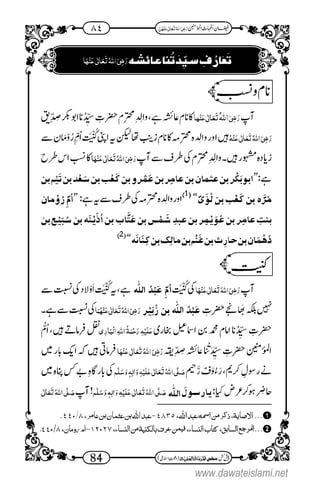 ٨٤
تَعارُفِ سیِّدَتُنا عائشه رَضِیَ اللہُ تَعَالٰی عَنْہَا
نام ونسب
آپ رَضِیَ اللہُ تَعَالٰی عَنْہَا کا نام عائشہ ہے، والدِ محترم حضرت سیِّدُنا ابوبکر صِدِّیق
رَضِیَ اللہُ تَعَالٰی عَنْہُ ہیں اور والدہ مهترمہ کا نام زینب تھا لیکن یہ اپنی کُنْیَت اُمِّ رُوْمَان سے
زیادہ مشہور ہیں۔ والدِ محترم کی طرف سے آپ رَضِیَ اللہُ تَعَالٰی عَنْہَا کا نسب اس طرح
ہے: ”ابوبَکْر بن عثمان بن عامِر بن عَمْرو بن کَعْب بن سَعْد بن تَیْم بن
مُرَّہ بن کَعْب بن لُؤَیّ“ (1) اور والدہ محترمہ کی طرف سے یہ ہے: ”اُمِّ رُوْمان
بنتِ عامِر بن عُوَیْمِر بن عبدِ شَمْس بن عَتَّاب بن اُذَیْنَہ بن سُبَیْع بن
دُھْمَان بن حارِث بن غَنْم بن مالِک بن کِنَانَہ“ (2)
کنیت
آپ رَضِیَ اللہُ تَعَالٰی عَنْہَا کی کُنْیَت اُمِّ عَبْدُ اللہ ہے، یہ کُنْیَت اولاد کی نسبت سے
نہیں بلکہ اپنے بھانجے حضرت عَبْدُ اللہ بن زُبَیْر رَضِیَ اللہُ تَعَالٰی عَنْہُمَا کی نسبت سے ہے۔
حضرت سیِّدُنا امام محمد بن اسماعیل بخاری عَلَیْہِ رَحْمَۃُ اللہِ الْبَارِی نقل فرماتے ہیں، اُمُّ
المؤمنین حضرت سیِّدَتُنا عائشہ صِدِّیقہ رَضِیَ اللہُ تَعَالٰی عَنْہَا فرماتی ہیں کہ ایک بار میں
نے رسولِ کریم، رَءُوْفٌ رَّحیم صَلَّی اللہُ تَعَالٰی عَلَیْہِ وَاٰلِہٖ وَسَلَّم کی بارگاہِ بے کس پناہ میں
حاضر ہو کر عرض کیا: یارسولَ اللہ صَلَّی اللہُ تَعَالٰی عَلَیْہِ وَاٰلِہٖ وَسَلَّم! آپ صَلَّی اللہُ تَعَالٰی
84
www.dawateislami.net